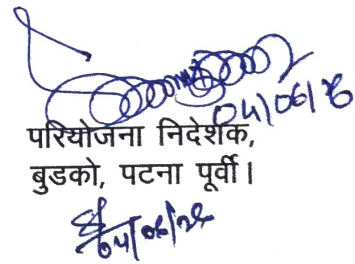 04/06/26
परियोजना निदेशक,
बुडको, पटना पूर्वी।
04/06/26